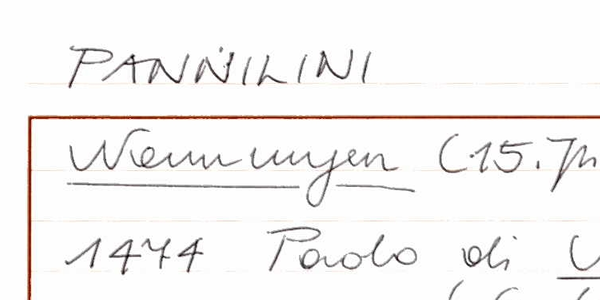 PANNILINI
Nennungen (15. Jh
1474 Paolo di